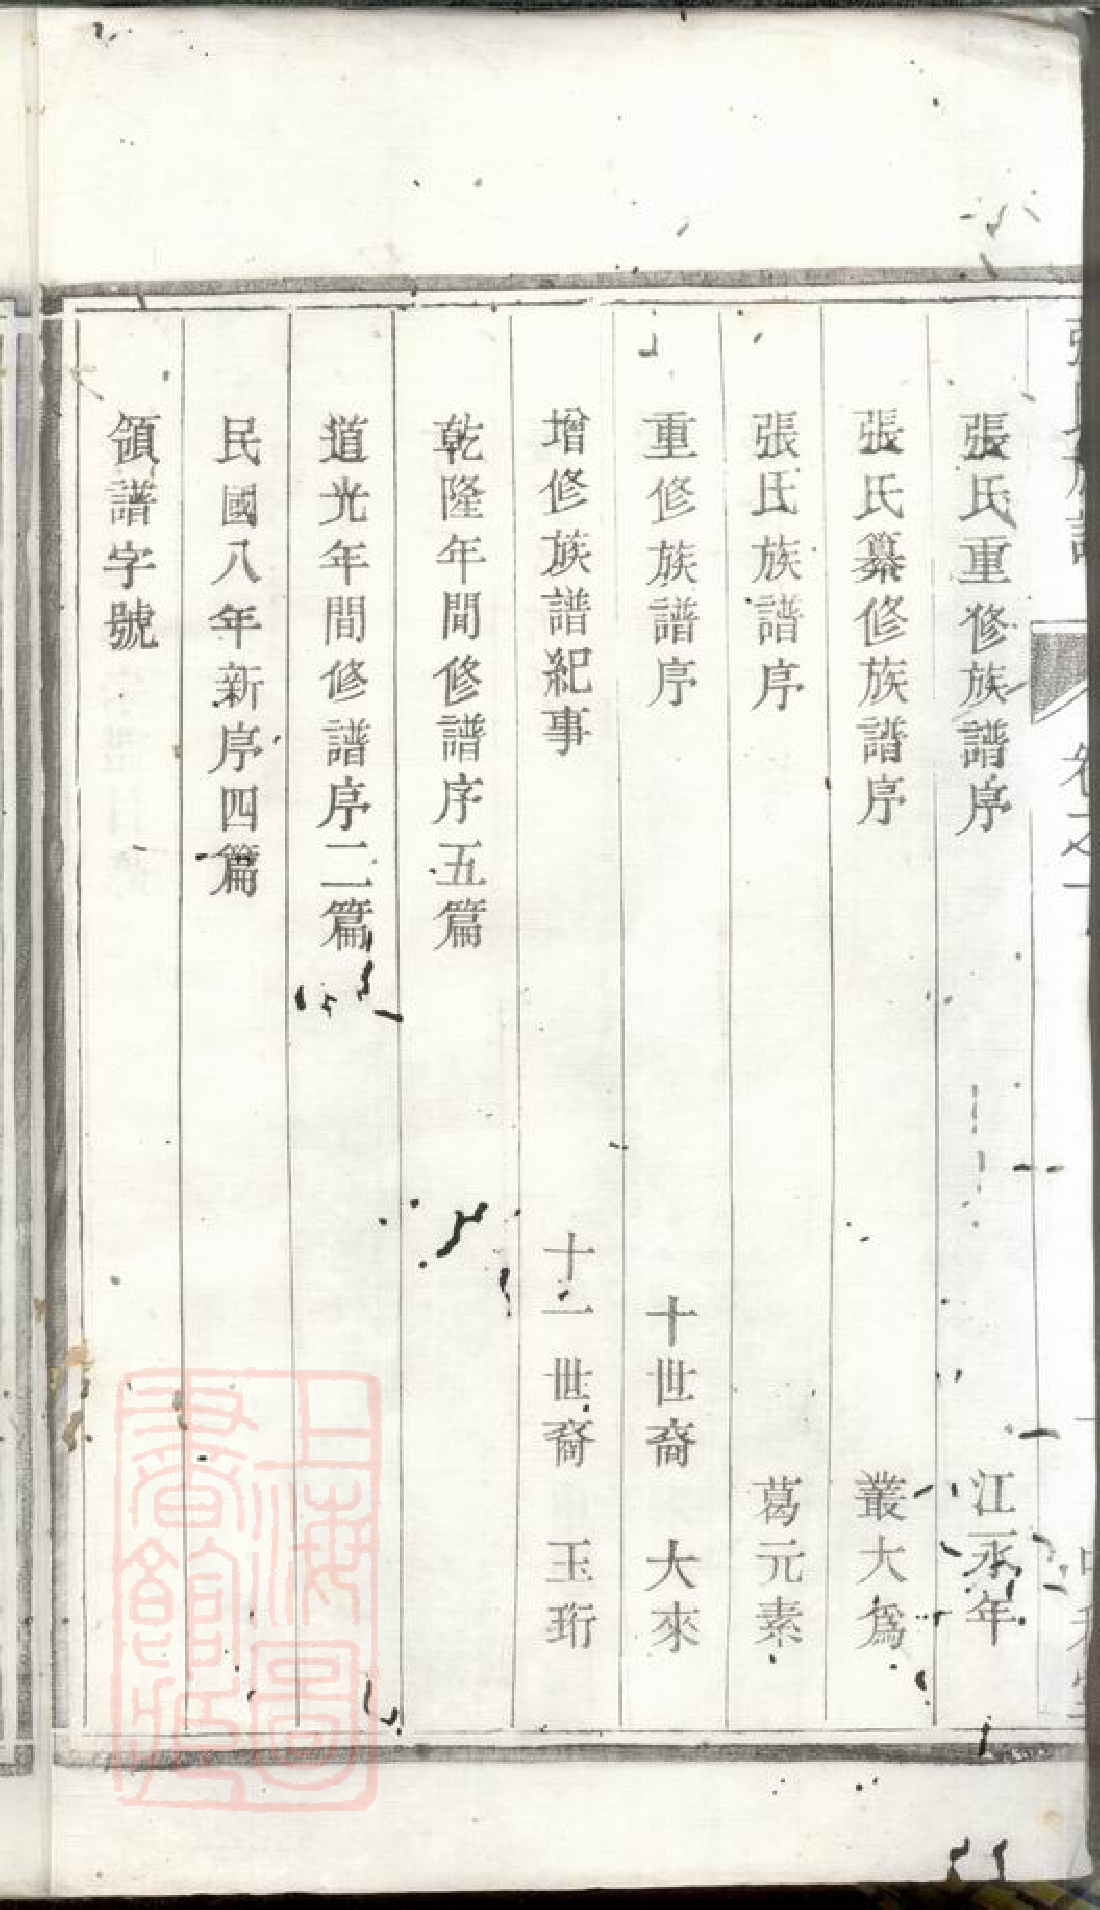 張氏重修族譜序 江永年
張氏纂修族譜序 叢大為
張氏族譜序 葛元素
重修族譜序 十世裔 大來
增修族譜紀事 十一世裔 玉珩
乾隆年間修譜序五篇
道光年間修譜序二篇
民國八年新序四篇
領譜字號
上海圖書館藏